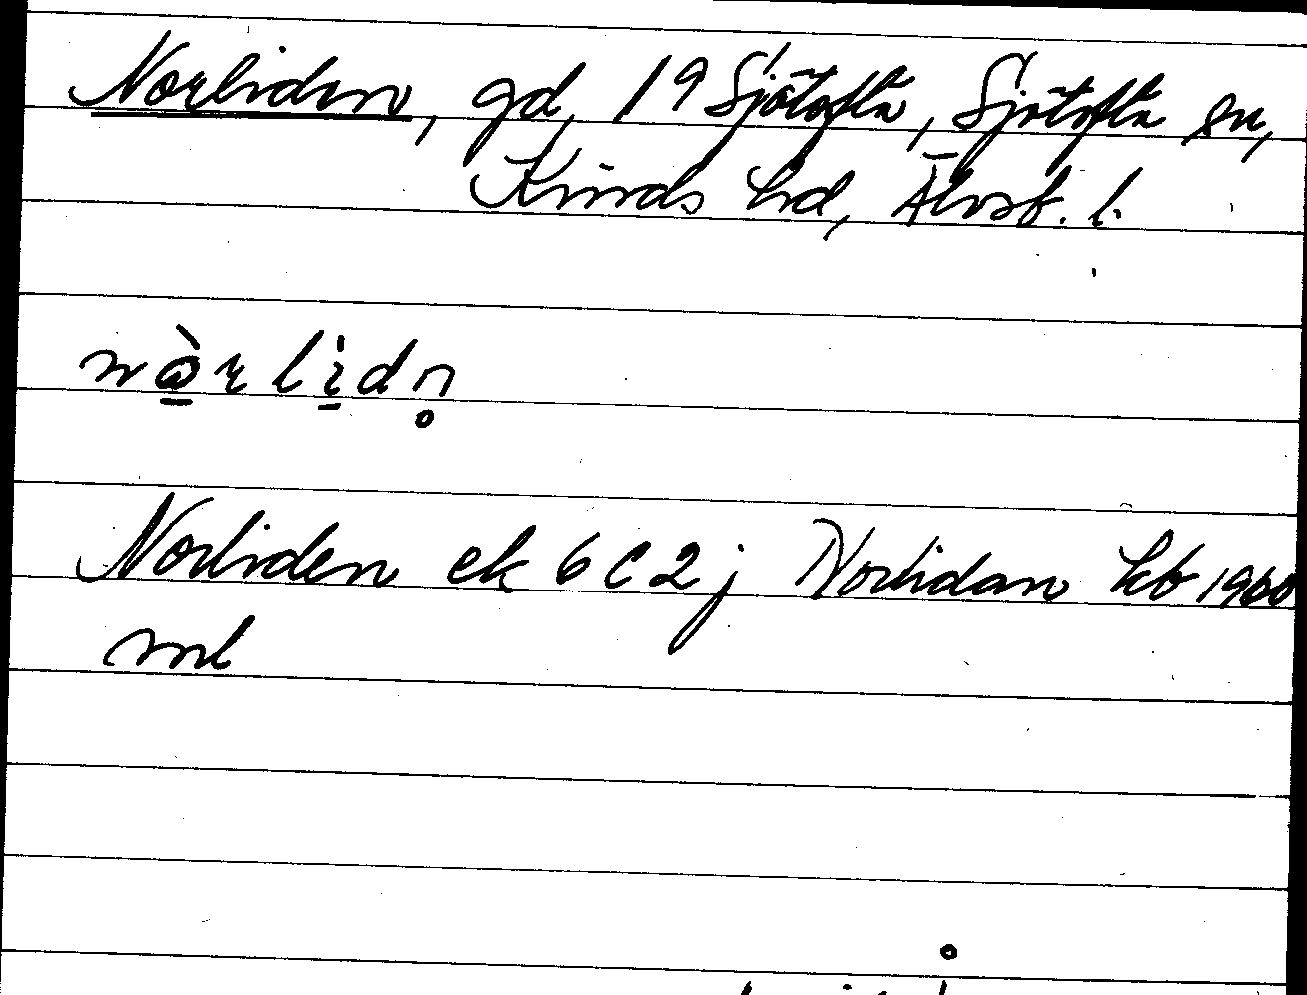 Norliden, gd, 19 Sjötofta, Sjötofta sn,
Kinds hd, Älvsb. l.
nə̱̀rlì̱dn̥
Norliden ek 6 C 2 j Norlidan kb 1960
ml